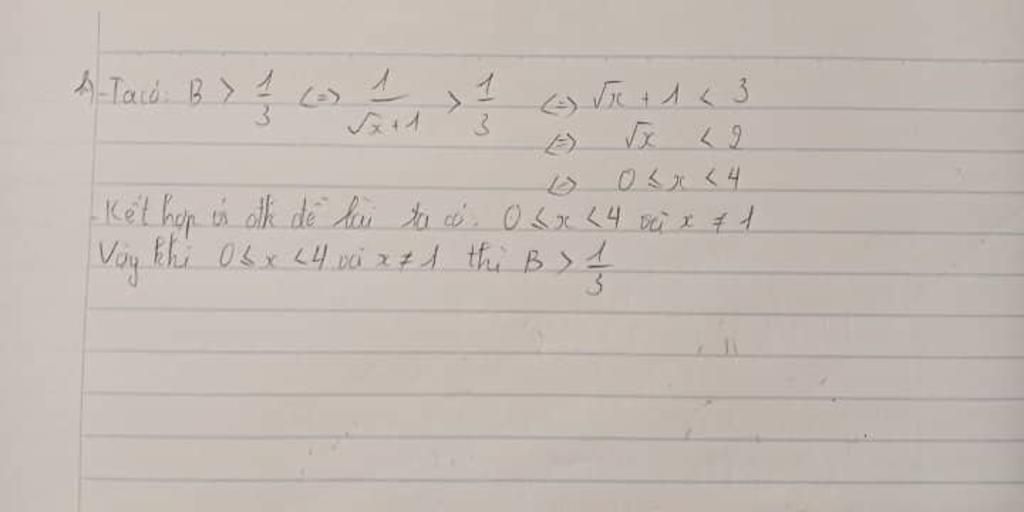 b) - Ta có: B > 1/3 <=> 1/(√x + 1) > 1/3 <=> √x + 1 < 3
<=> √x < 2
<=> 0 ≤ x < 4
- Kết hợp với đk đề bài ta có: 0 ≤ x < 4 và x ≠ 1
Vậy khi 0 ≤ x < 4 và x ≠ 1 thì B > 1/3